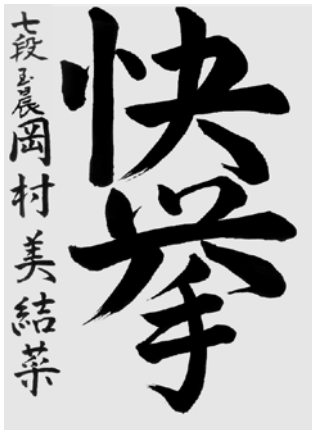 快挙
七段 玉晨 岡村美結菜